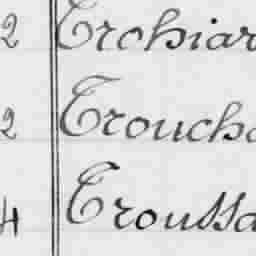 2 Trohiar
2 Troucha
4 Troussa